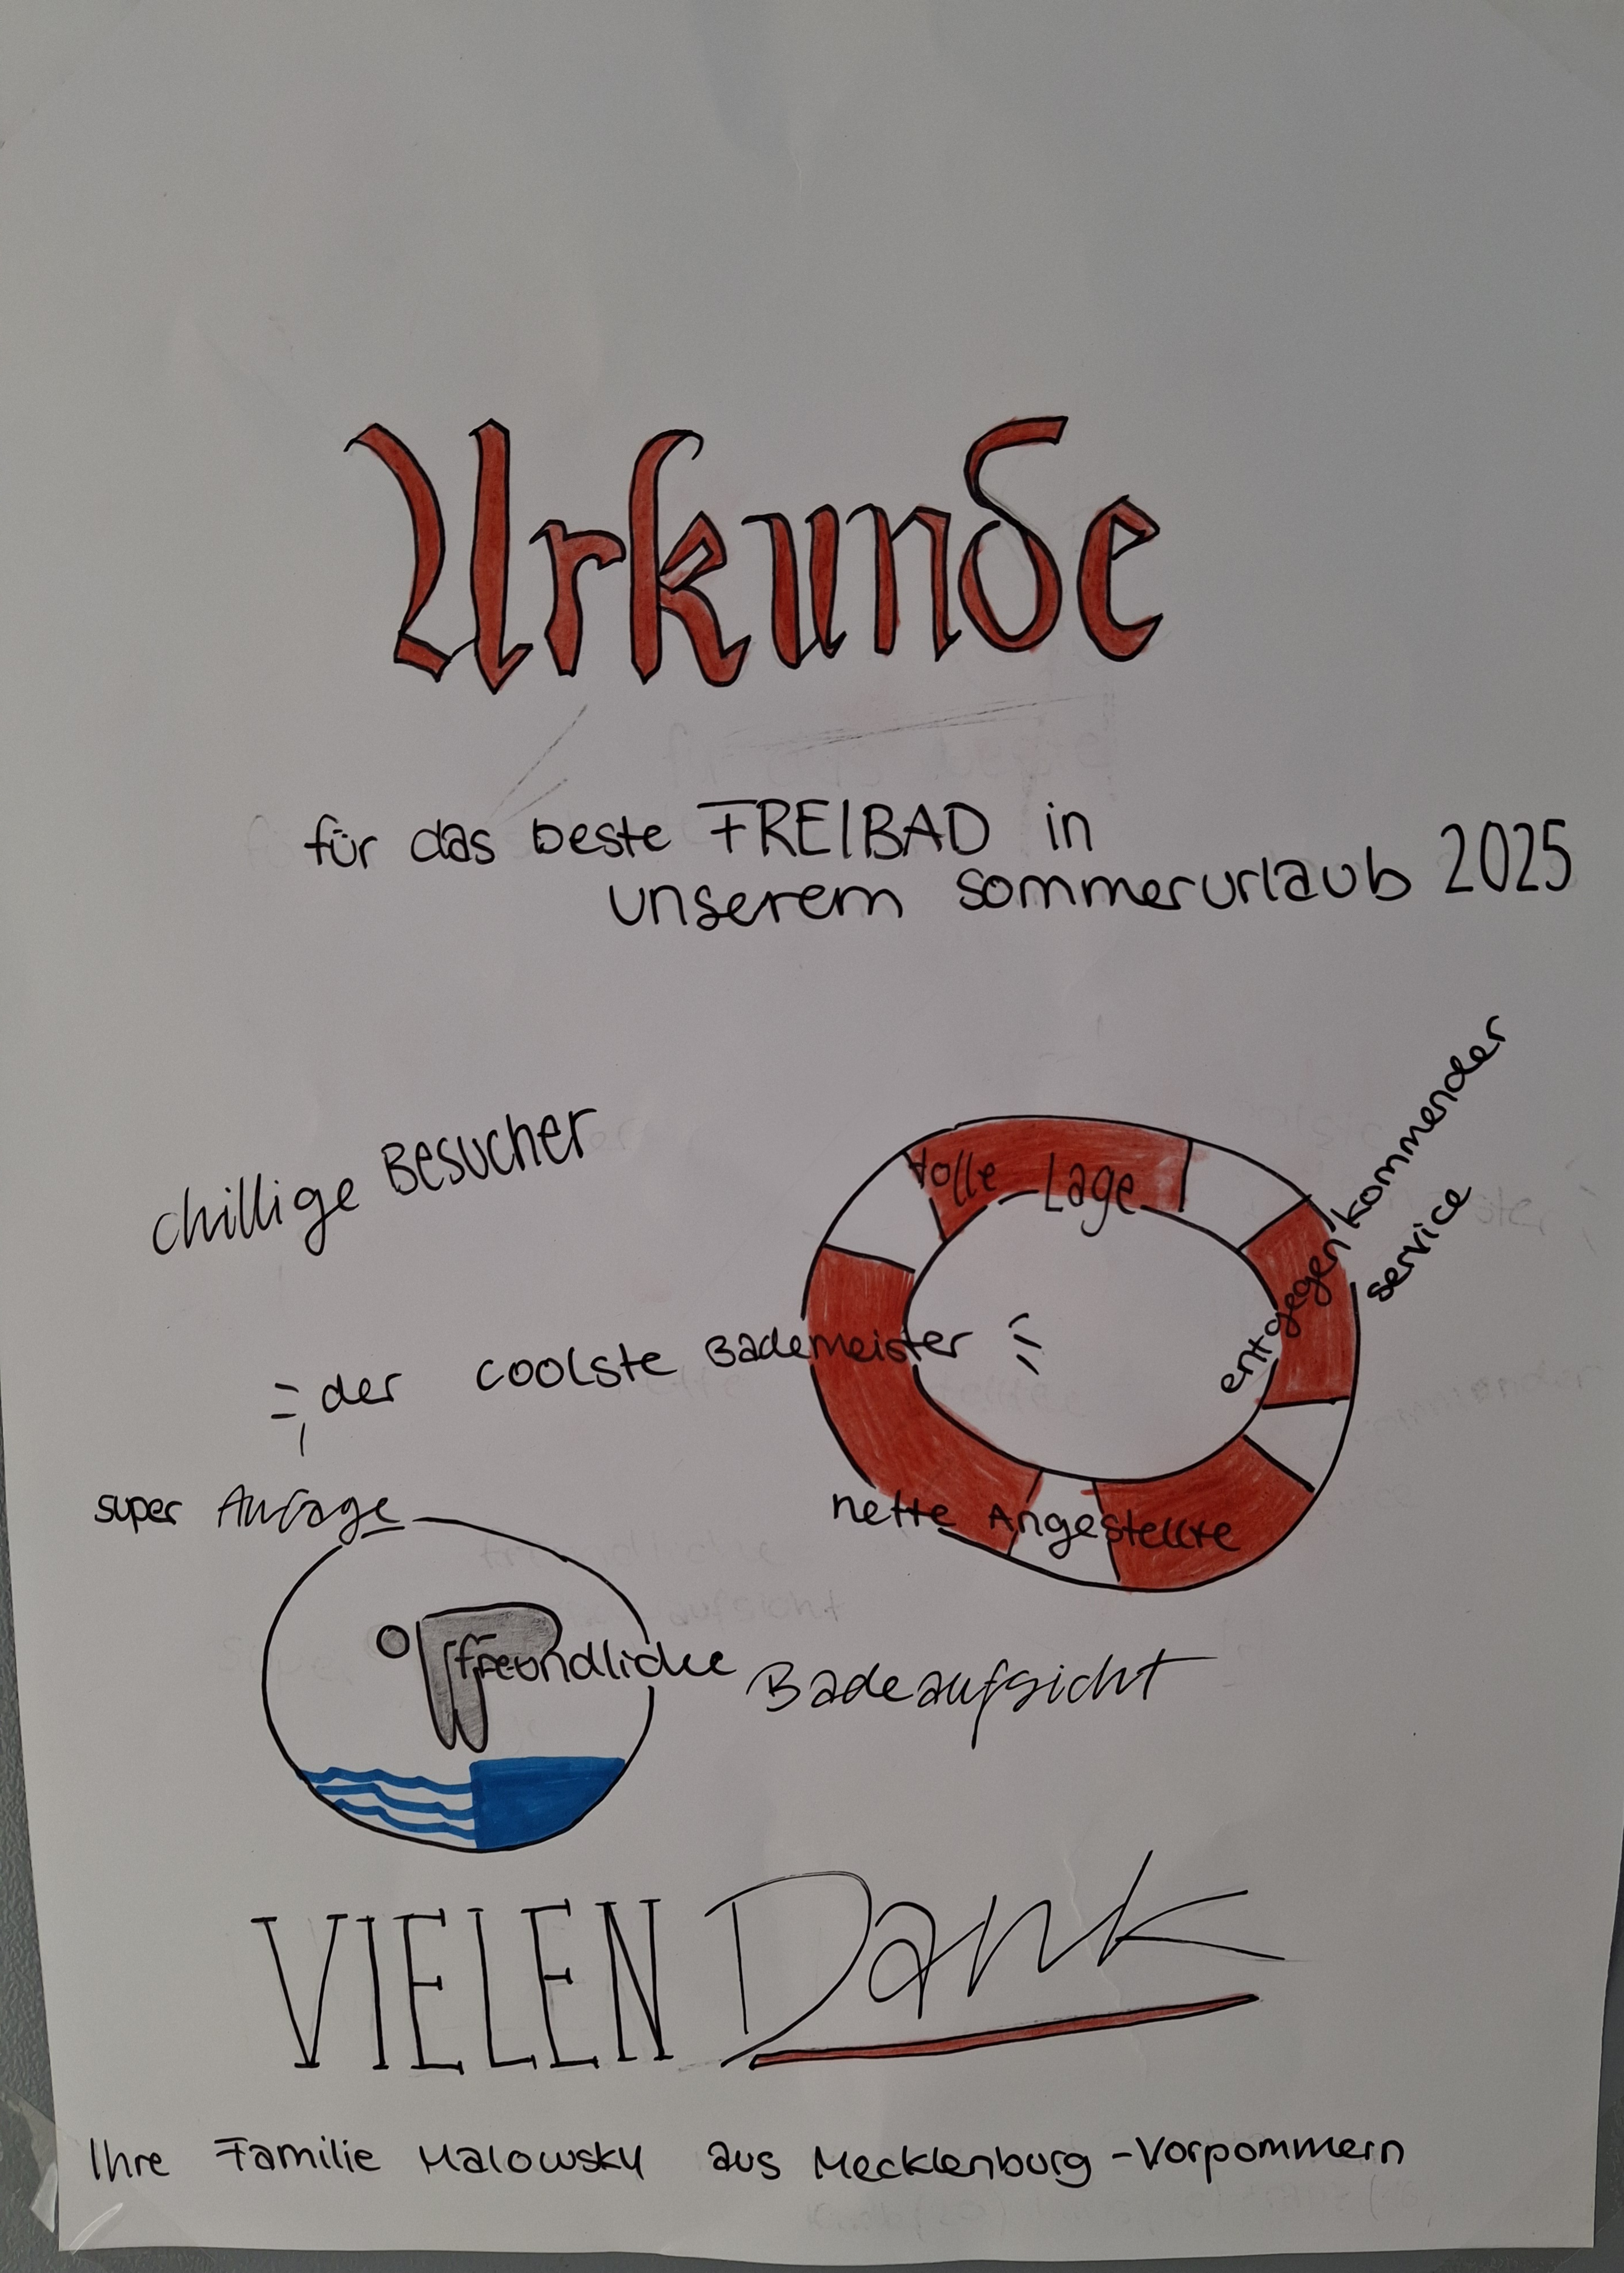 Urkunde
für das beste FREIBAD in
unserem sommerurlaub 2025
chillige BESUCHER
tolle Lage
entgegenkommender
service
der coolste Bademeister
super Anlage
nette Angestellte
freundliche Badeaufsicht
VIELEN Dank
Ihre Familie Malowsky aus Mecklenburg-Vorpommern